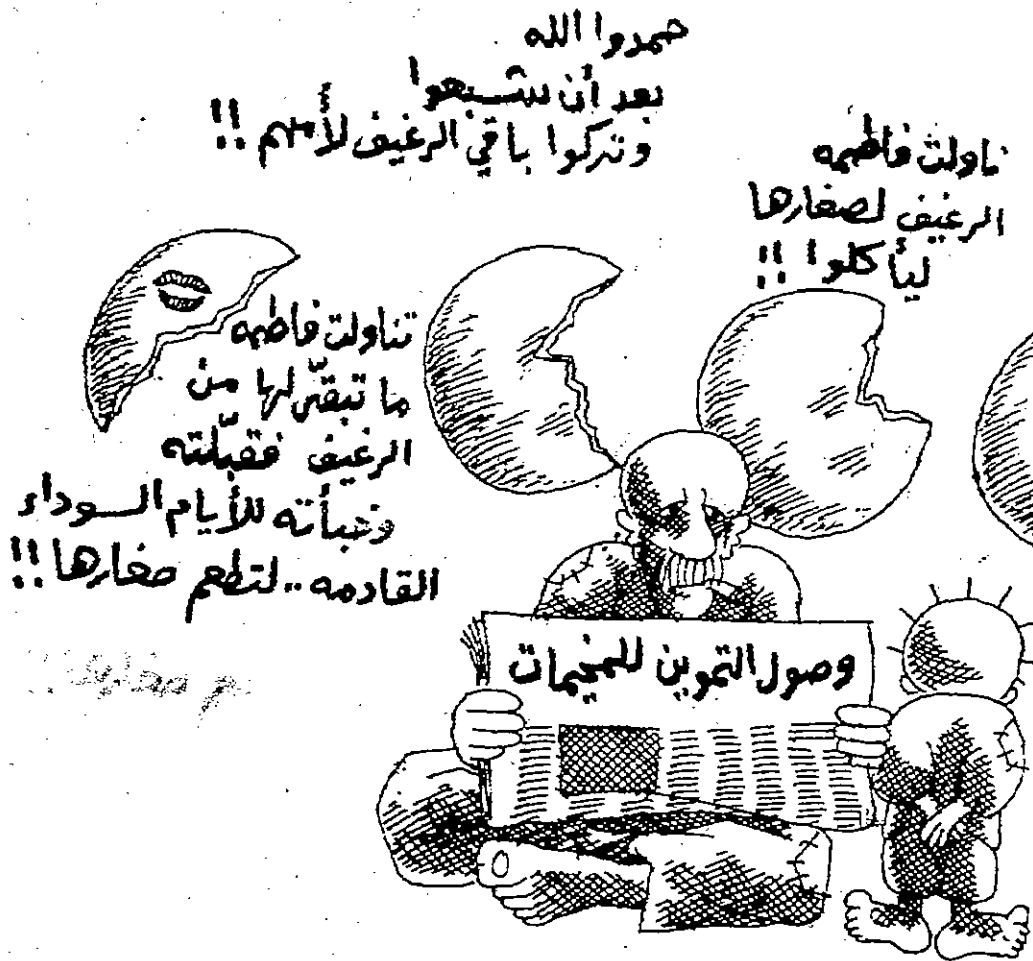 ناولت فاطمه
الرغيف لصغارها
ليأكلوا !!
حمدوا الله
بعد أن شبعوا
وتركوا باقي الرغيف لأمهم !!
تناولت فاطمه
ما تبقّى لها من
الرغيف فقبّلته
وخبأته للأيام السوداء
القادمه .. لتطعم صغارها !!
وصول التموين للمخيمات